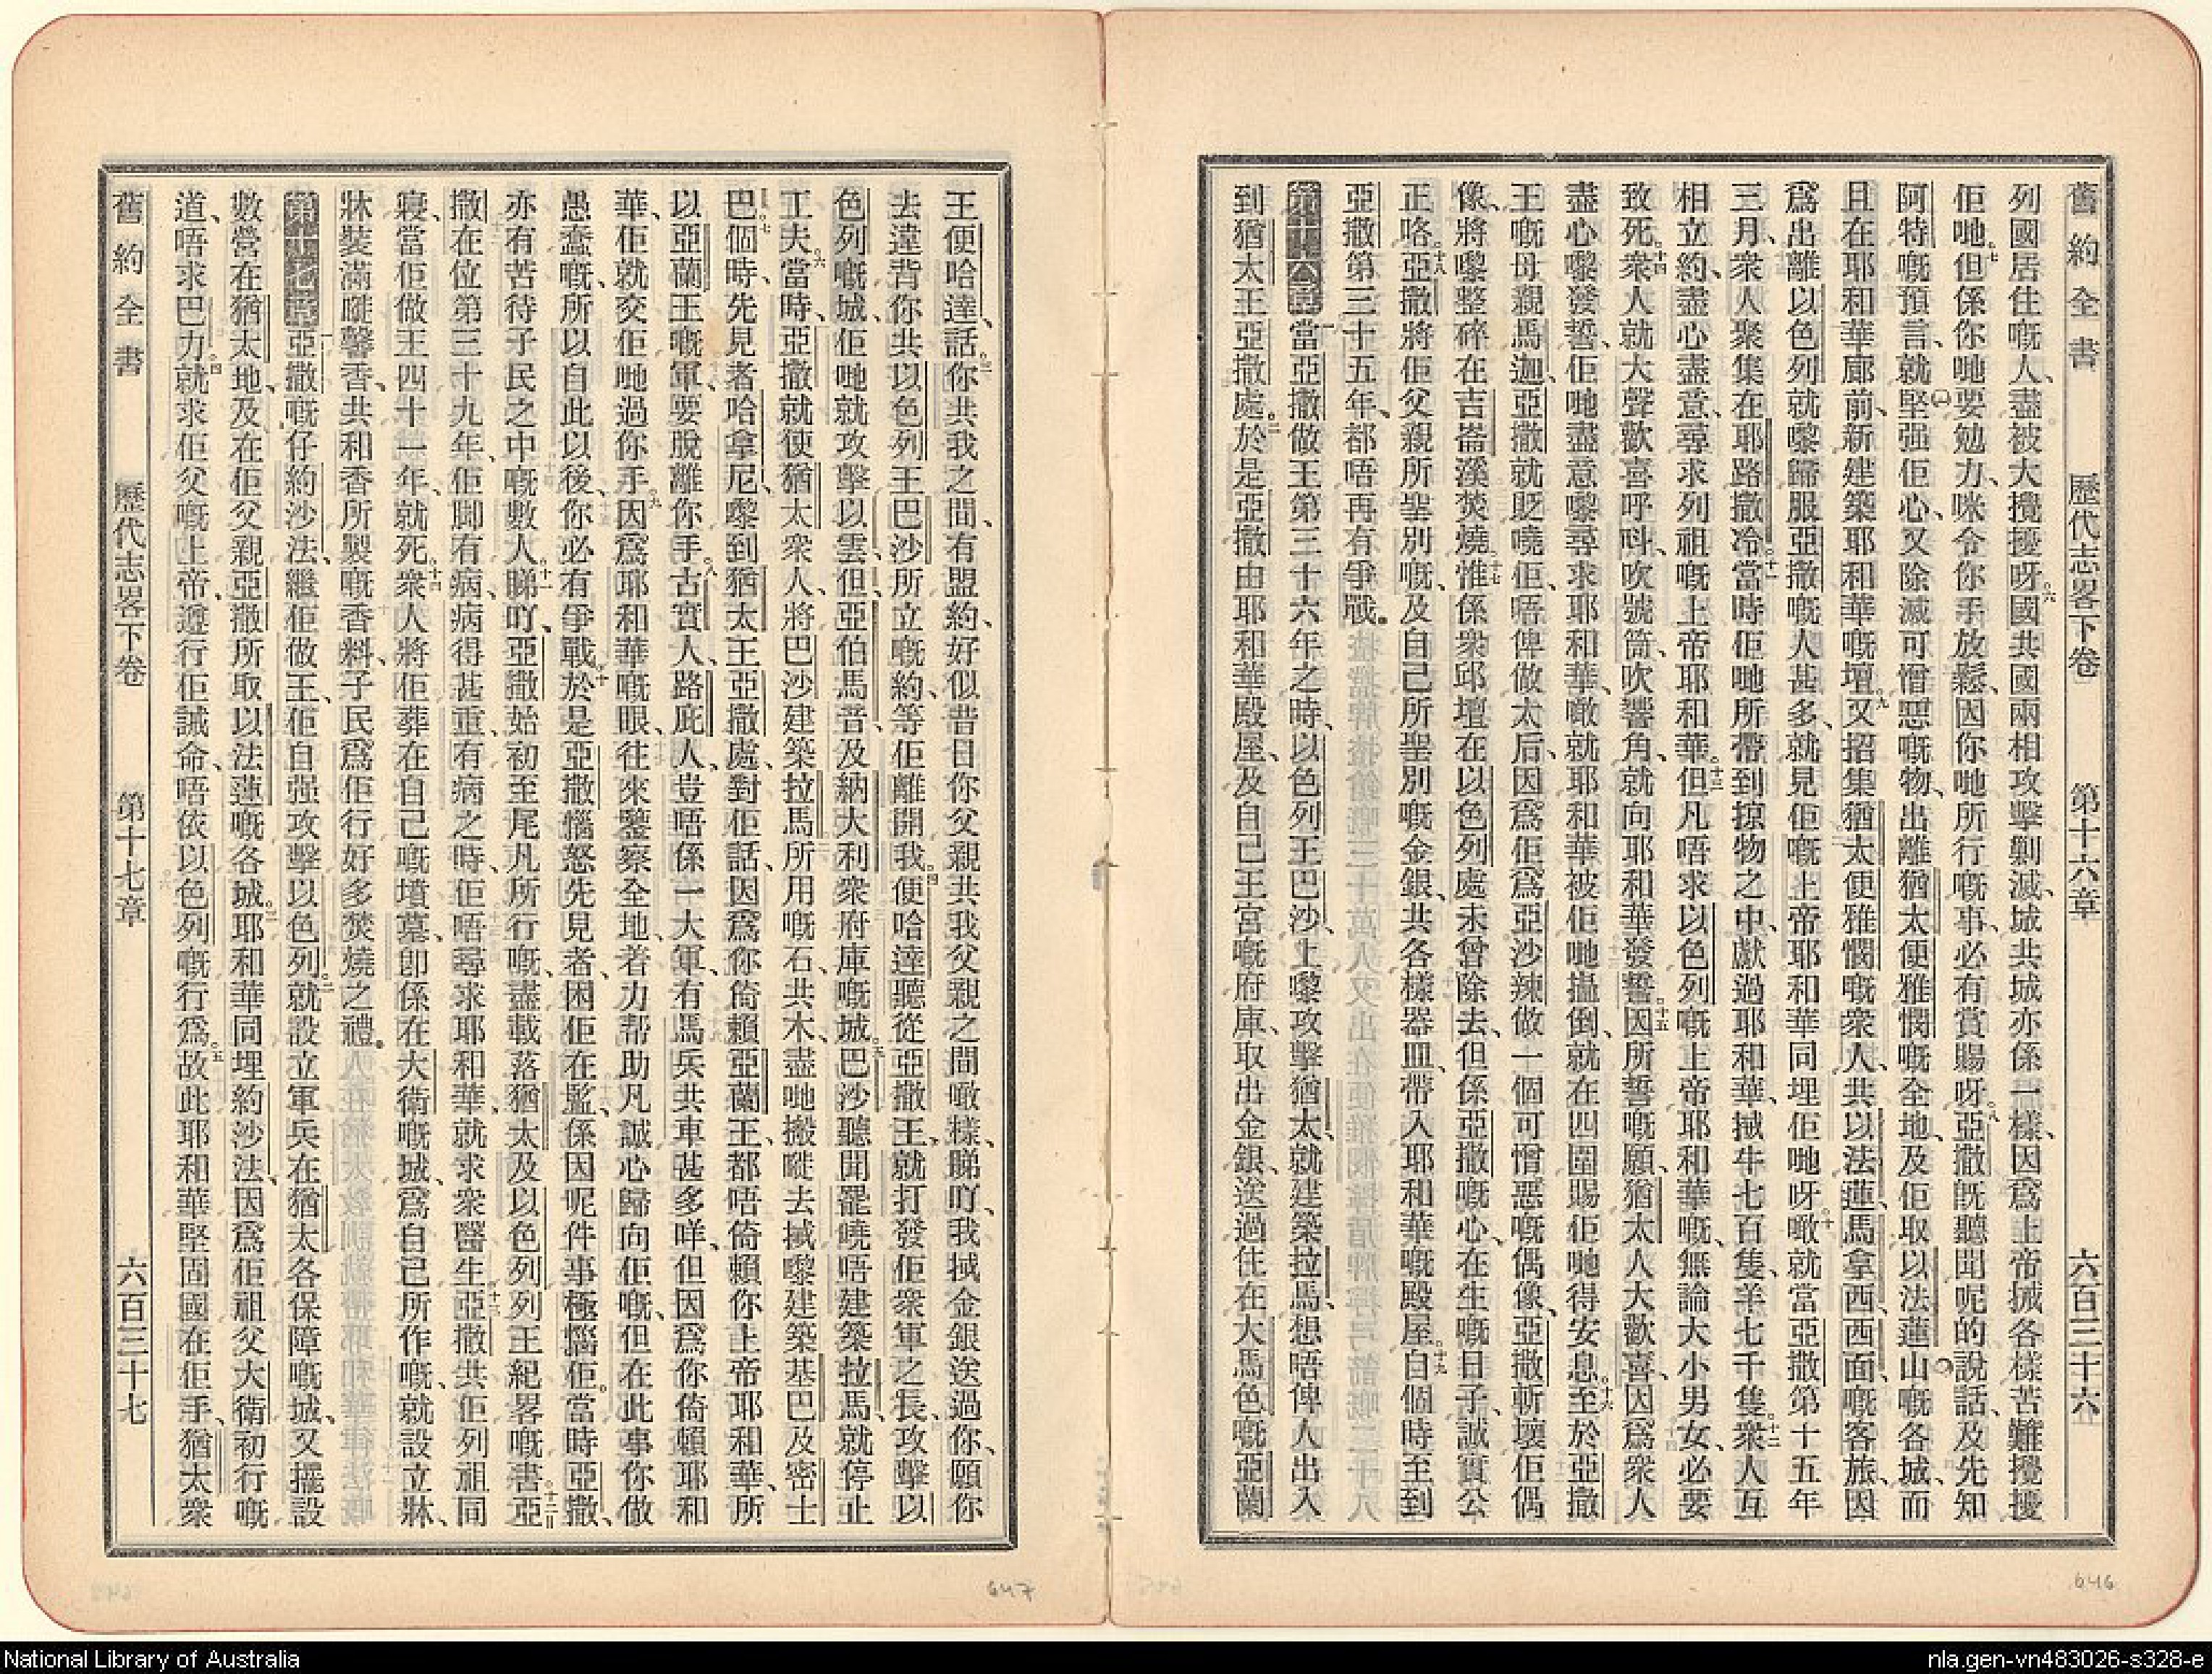 舊約全書 歷代志畧下卷 第十六章 六百三十六
列國居住嘅人、盡被大攪擾呀。六國共國兩相攻擊剿滅、城共城亦係一樣、因爲上帝搣各樣苦難攪擾
佢哋。七但係你哋要勉力、咪令你手放鬆、因你哋所行嘅事、必有賞賜呀。八亞撒旣聽聞呢的說話、及先知
阿特嘅預言、就堅强佢心、又除滅可憎惡嘅物、出離猶太便雅憫嘅全地、及佢取以法蓮山嘅各城、而
且在耶和華廊前、新建築耶和華嘅壇。九又招集猶太便雅憫嘅衆人、共以法蓮、馬拿西、西面嘅客旅、因
爲出離以色列就嚟歸服亞撒嘅人甚多、就見佢嘅上帝耶和華同埋佢哋呀。十噉就當亞撒第十五年
三月、衆人聚集在耶路撒冷。十一當時佢哋所帶到掠物之中、獻過耶和華、搣牛七百隻、羊七千隻。十二衆人互
相立約、盡心盡意、尋求列祖嘅上帝耶和華。十三但凡唔求以色列嘅上帝耶和華嘅、無論大小男女、必要
致死。十四衆人就大聲歡喜呼呌、吹號筒、吹響角、就向耶和華發誓。十五因所誓嘅願、猶太人大歡喜、因爲衆人
盡心嚟發誓、佢哋盡意嚟尋求耶和華、噉就耶和華被佢哋揾倒、就在四圍賜佢哋得安息。十六至於亞撒
王嘅母親馬迦、亞撒就貶嘵佢、唔俾做太后、因爲佢爲亞沙辣做一個可憎惡嘅偶像、亞撒斬壞佢偶
像、將嚟整碎、在吉崙溪焚燒。十七惟係衆邱壇在以色列處未曾除去、但係亞撒嘅心、在生嘅日子、誠實公
正咯。十八亞撒將佢父親所聖別嘅、及自己所聖別嘅金銀、共各樣器皿、帶入耶和華嘅殿屋。十九自個時至到
亞撒第三十五年、都唔再有爭戰。
第十六章一當亞撒做王第三十六年之時、以色列王巴沙、上嚟攻擊猶太、就建築拉馬、想唔俾人出入
到猶大王亞撒處。二於是亞撒由耶和華殿屋、及自己王宮嘅府庫、取出金銀、送過住在大馬色嘅亞蘭
王便哈達、話。三你共我之間、有盟約、好似昔日你父親共我父親之間噉樣、睇吖、我搣金銀送過你、願你
去違背你共以色列王巴沙所立嘅約、等佢離開我。四便哈達聽從亞撒王、就打發佢衆軍之長、攻擊以
色列嘅城、佢哋就攻擊以雲、但、亞伯馬音、及納大利衆府庫嘅城。五巴沙聽聞罷嘵唔建築拉馬、就停止
工夫。六當時、亞撒就使猶太衆人、將巴沙建築拉馬所用嘅石共木、盡哋搬嘥去、搣嚟建築基巴、及密士
巴。七個時、先見者哈拿尼、嚟到猶大王亞撒處、對佢話、因爲你倚賴亞蘭王、都唔倚賴你上帝耶和華、所
以亞蘭王嘅軍、要脫離你手。八古實人、路庇人、豈唔係一大軍、有馬兵共車甚多咩、但因爲你倚賴耶和
華、佢就交佢哋過你手。九因爲耶和華嘅眼、往來鑒察全地、者力帮助凡誠心歸向佢嘅、但在此事你做
愚蠢嘅、所以自此以後、你必有爭戰。十於是亞撒惱怒先見者、困佢在監、係因呢件事極惱佢。當時亞撒、
亦有苦待子民之中嘅數人。十一睇吖、亞撒始初至尾凡所行嘅、盡載落猶太及以色列列王紀畧嘅書。十二亞
撒在位第三十九年、佢脚有病、病得甚重、有病之時、佢唔尋求耶和華、就求衆醫生。十三亞撒共佢列祖同
寢、當佢做王四十一年、就死。十四衆人將佢葬在自己嘅墳墓、卽係在大衛嘅城、爲自己所作嘅、就設立牀、
牀裝滿馨香、共和香所製嘅香料、子民爲佢行好多焚燒之禮。
第十七章一亞撒嘅仔約沙法、繼佢做王、佢自强攻擊以色列。二就設立軍兵在猶太各保障嘅城、又擺設
數營在猶太地、及在佢父親亞撒所取以法蓮嘅各城。三耶和華同埋約沙法、因爲佢祖父大衛初行嘅
道、唔求巴力。四就求佢父嘅上帝、遵行佢誡命、唔依以色列嘅行爲。五故此耶和華堅固國在佢手、猶太衆
舊約全書 歷代志畧下卷 第十七章 六百三十七
647
646
National Library of Australia
nla.gen-vn483026-s328-e